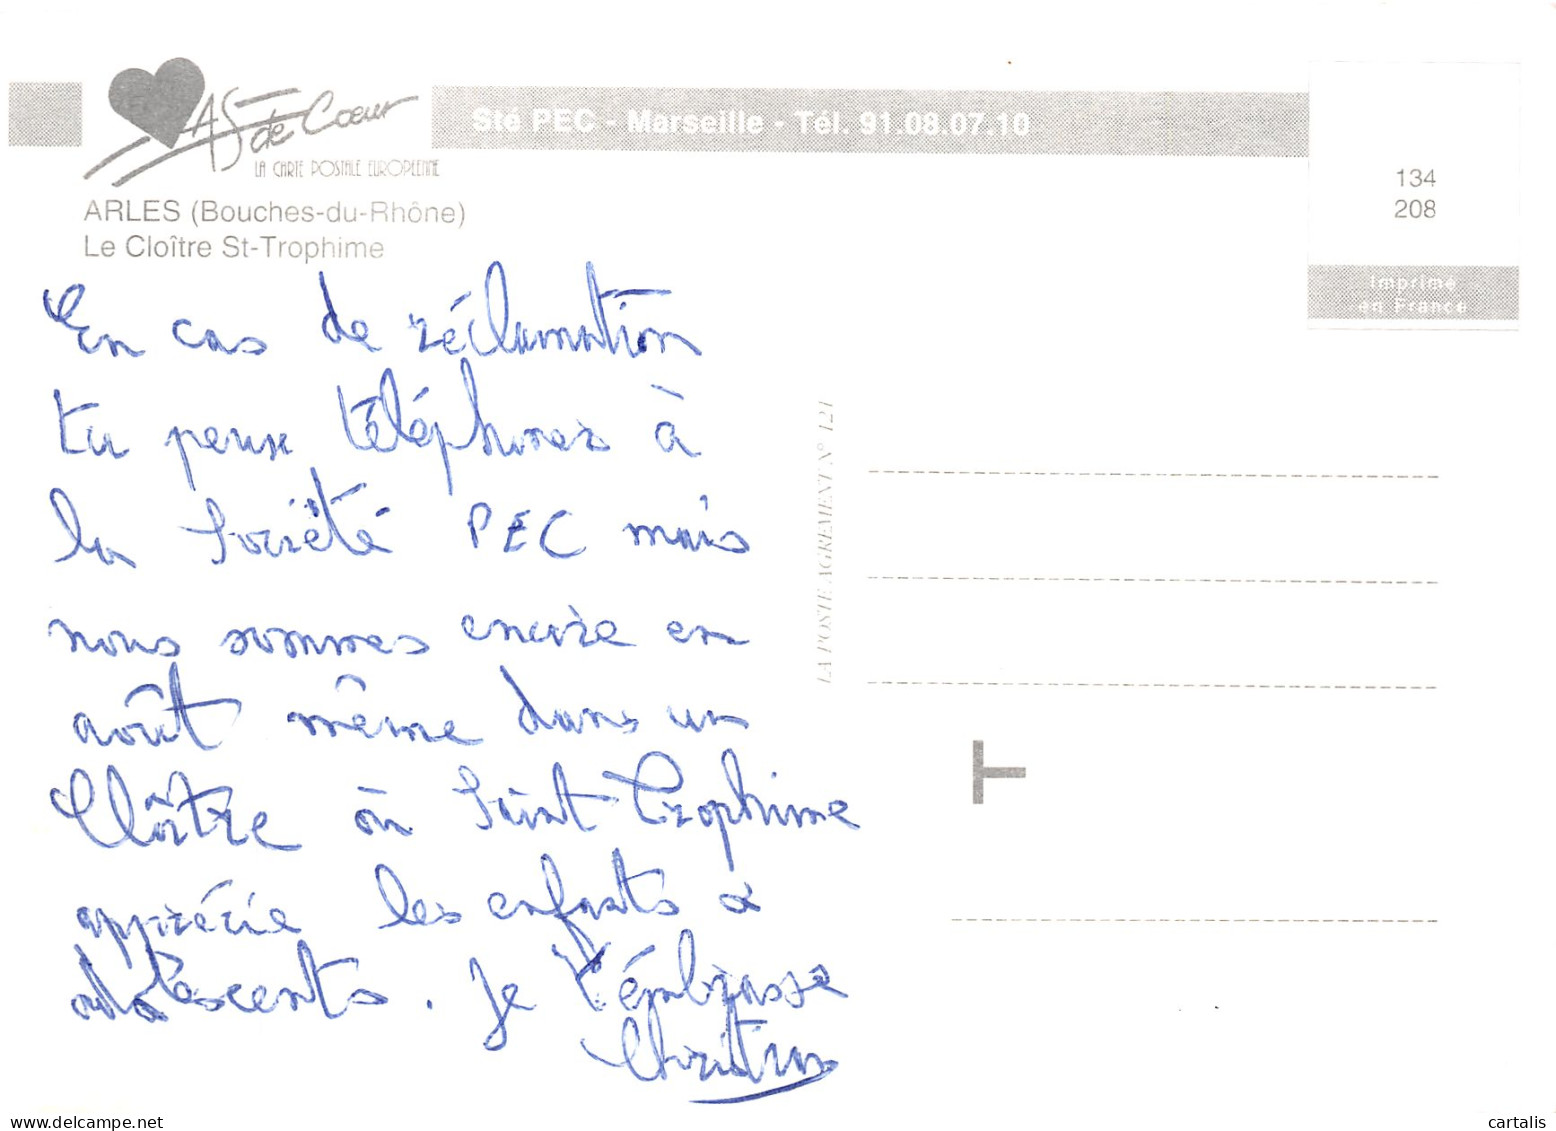 As de Cœur
LA CARTE POSTALE EUROPEENNE
Sté PEC - Marseille - Tél. 91.08.07.10
134
208
Imprimé
en France
ARLES (Bouches-du-Rhône)
Le Cloître St-Trophime
En cas de réclamation
tu peux téléphoner à
la Société PEC mais
nous sommes encore en
août même dans un
Cloître où Saint Trophime
apprécie les enfants &
adolescents. Je t'embrasse
LA POSTE AGREMENT N° 121
T
cartalis
delcampe.net